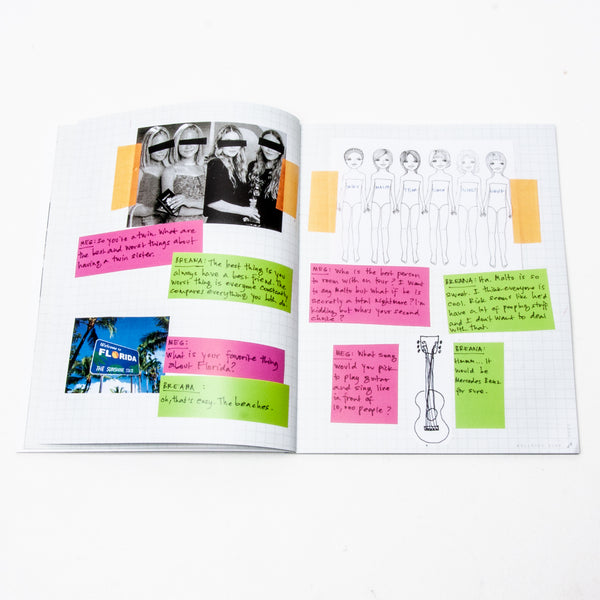 MEG: So you're a twin. What are
the best and worst things about
having a twin sister.
BREANA: The best thing is you
always have a best friend. The
worst thing is everyone constantly
compares everything you both do.
Welcome to
FLORIDA
THE SUNSHINE STATE
MEG:
What is your favorite thing
about Florida?
BREANA:
oh, that's easy. The beaches.
MEG: Who is the best person
to room with on tour? I want
to say Malto but what if he is
secretly a total nightmare? I'm
kidding, but who's your second
choice?
BREANA: Ha. Malto is so
sweet. I think everyone is
cool. Rick seems like he'd
have a lot of
stuff
and I don't want to deal
with that.
MEG: What song
would you pick
to play guitar
and sing live
in front of
10,000 people?
BREANA:
Hmmm... It
would be
Mercedes Benz
for sure.